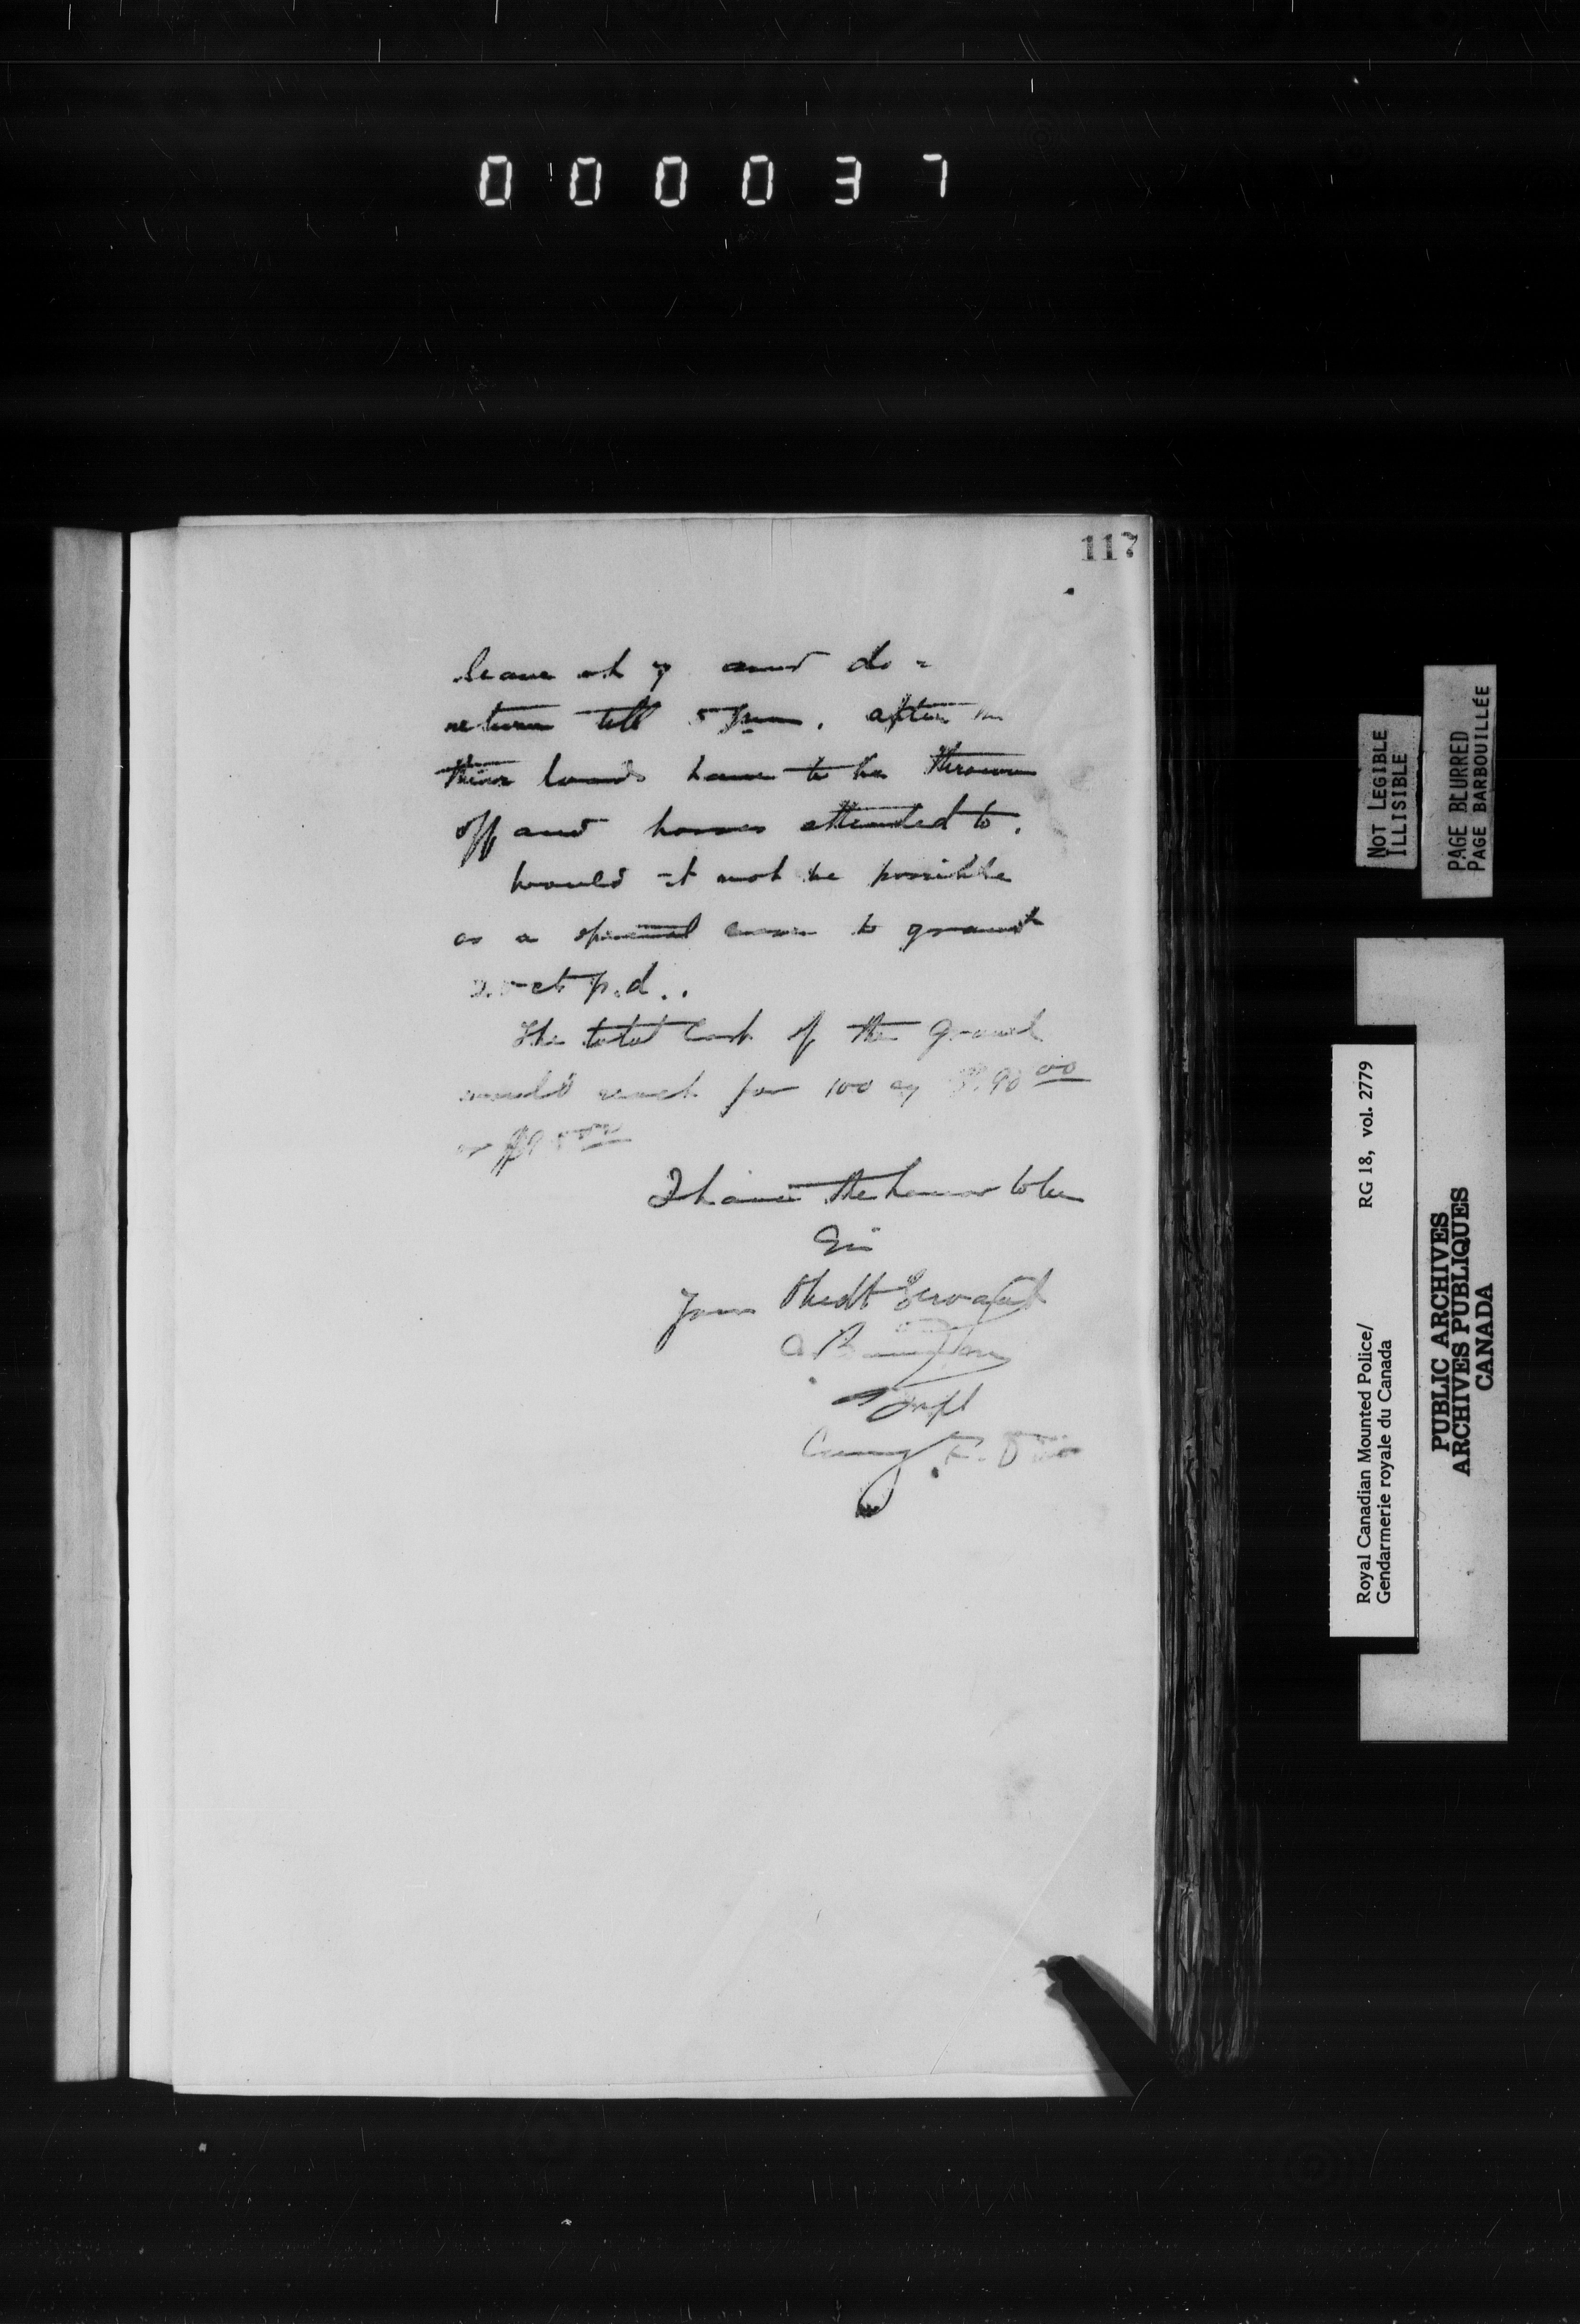 000037
117
leave at 7 and do =
return till 5 pm. after
their loads have to be thrown
off and horses attended to.
Would it not be possible
as a special case to grant
25 ct p.d..
The total cost of the gravel
would reach for 100 cy
I have the honor to be
Sir
Your Obedt Servant
A. B
Supt
Comg F. Div
NOT LEGIBLE
ILLISIBLE
PAGE BLURRED
PAGE BARBOUILLÉE
Royal Canadian Mounted Police/ RG 18, vol. 2779
Gendarmerie royale du Canada
PUBLIC ARCHIVES
ARCHIVES PUBLIQUES
CANADA